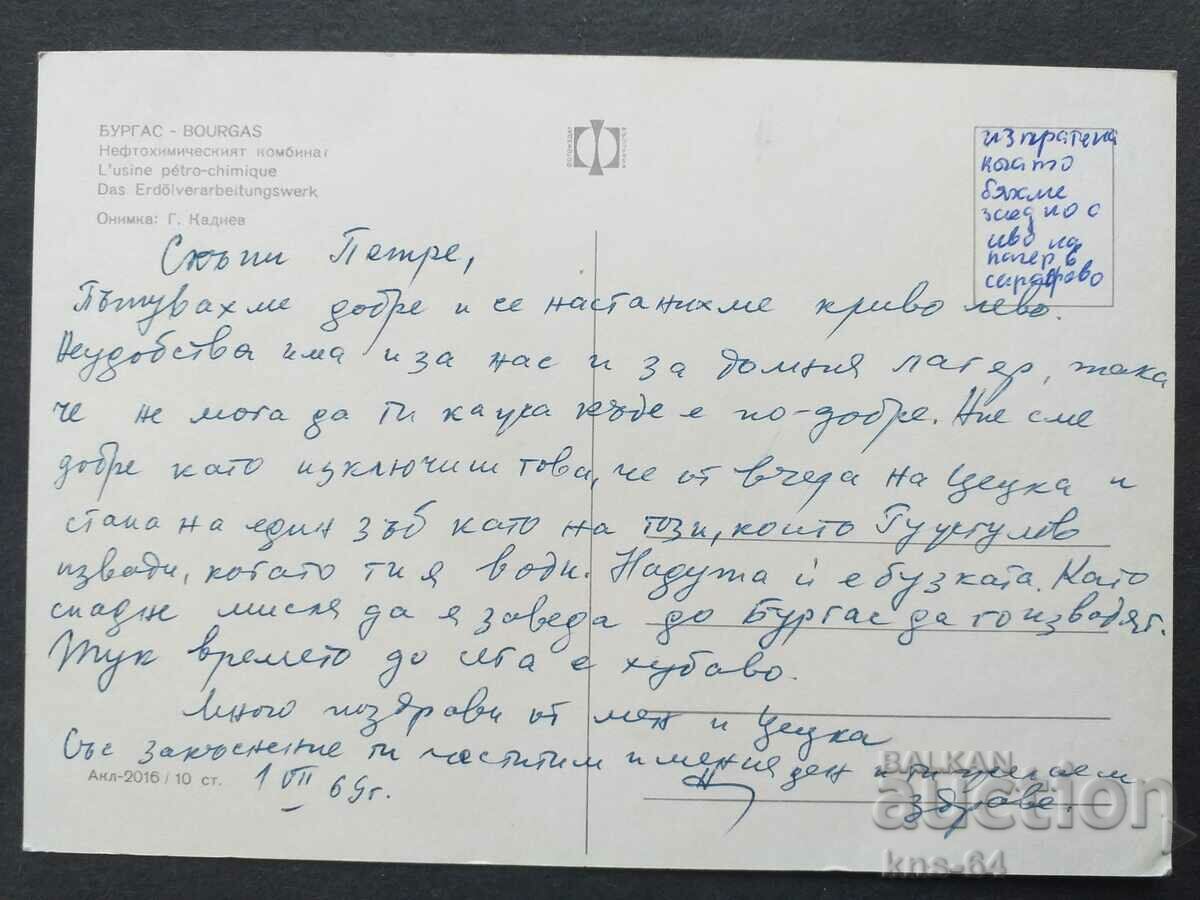 БУРГАС - BOURGAS
Нефтохимическият комбинат
L'usine pétro-chimique
Das Erdölverarbeitungswerk
Онимка: Г. Кадиев
изпратена
когато
бяхме
заедно с
иво на
лагер в
сарафово
Скъпи Петре,
Пътувахме добре и се настанихме криво лево.
Неудобства има и за нас и за долния лагер, така
че н мога да ти кажа къде е по-добре. Ние сме
добре като изключиш това, че от вчера на Цецка и
стана на един зъб като на този, който
извади, когато ти я води. Надута ѝ е бузката. Като
спадне мисля да я заведа до Бургас да го извадят.
Тук времето до сега е хубаво.
Много поздрави от мен и Цецка
Със закъснение ти честитим имения ден и ти желаем
здраве.
1 VII 69г.
Акл-2016/10 ст.
BALKAN
auction
kns-64